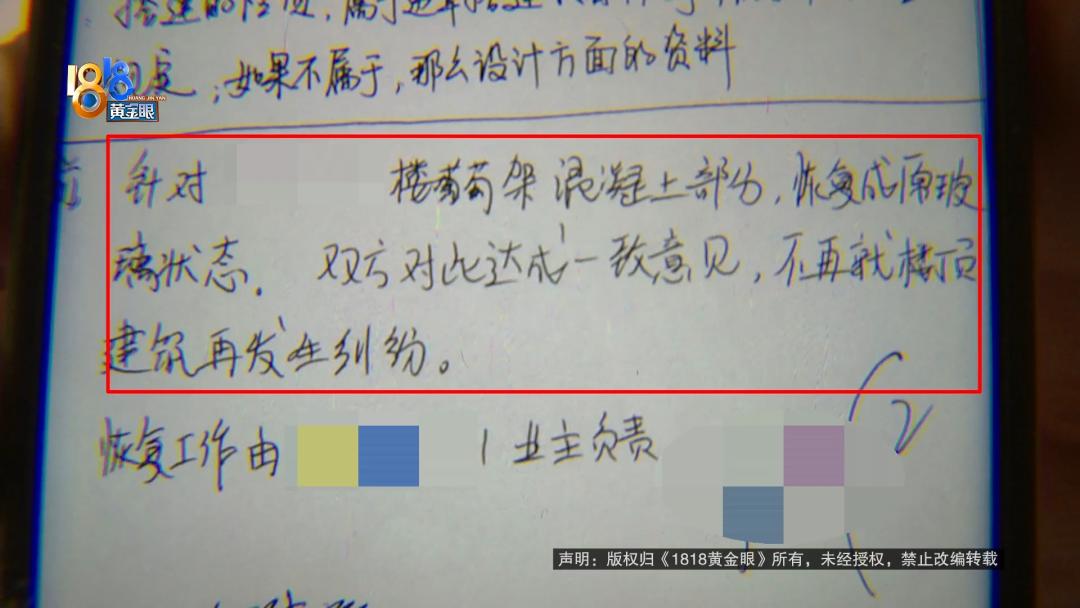 搭建的
1818
HUANG JIN YAN
黄金眼
定；如果不属于，那么设计方面的资料
针对 楼葡萄架混凝土部分，恢复成原玻
璃状态。双方对此达成一致意见，不再就楼顶
建筑再发生纠纷。
恢复工作由 1业主负责
声明：版权归《1818黄金眼》所有，未经授权，禁止改编转载